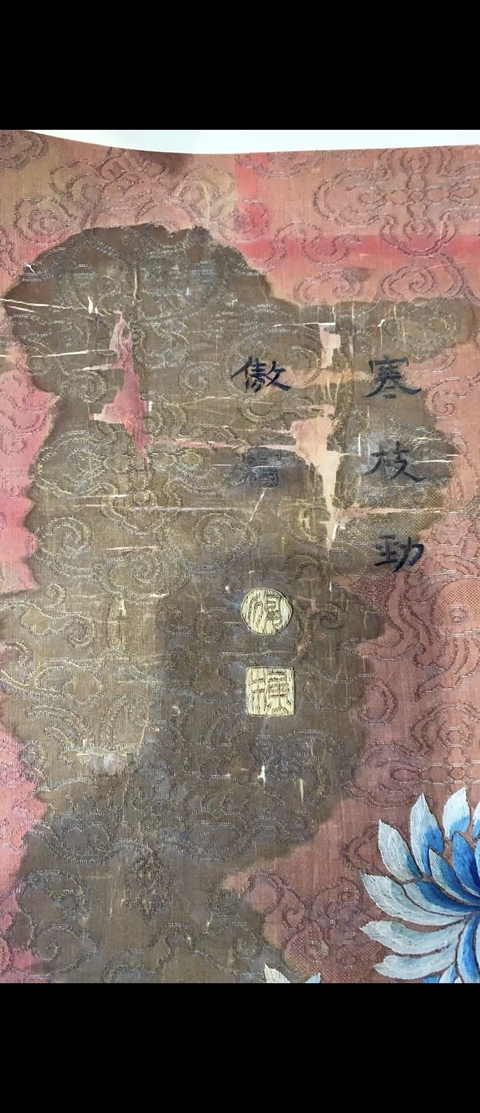 寒枝勁
傲霜